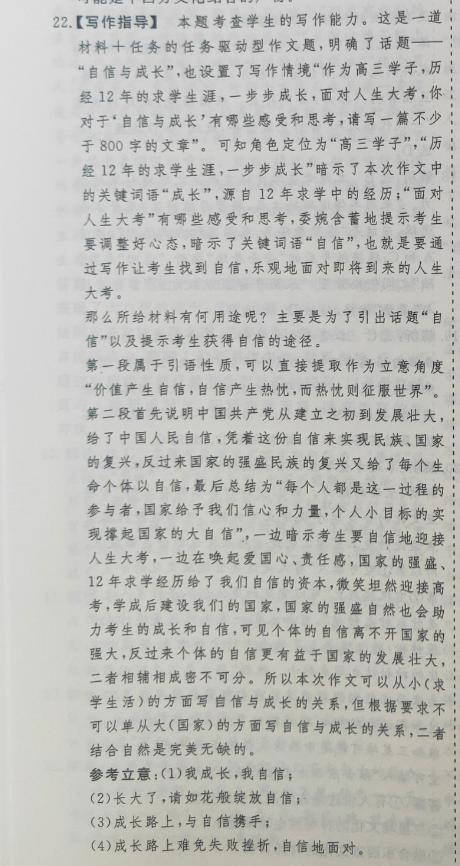 22.【写作指导】 本题考查学生的写作能力。这是一道
材料＋任务的任务驱动型作文题，明确了话题——
“自信与成长”，也设置了写作情境“作为高三学子，历
经 12 年的求学生涯，一步步成长，面对人生大考，你
对于‘自信与成长’有哪些感受和思考，请写一篇不少
于 800 字的文章”。可知角色定位为“高三学子”，“历
经 12 年的求学生涯，一步步成长”暗示了本次作文中
的关键词语“成长”，源自 12 年求学中的经历；“面对
人生大考”有哪些感受和思考，委婉含蓄地提示考生
要调整好心态，暗示了关键词语“自信”，也就是要通
过写作让考生找到自信，乐观地面对即将到来的人生
大考。
那么所给材料有何用途呢？主要是为了引出话题“自
信”以及提示考生获得自信的途径。
第一段属于引语性质，可以直接提取作为立意角度
“价值产生自信，自信产生热忱，而热忱则征服世界”。
第二段首先说明中国共产党从建立之初到发展壮大，
给了中国人民自信，凭着这份自信来实现民族、国家
的复兴，反过来国家的强盛民族的复兴又给了每个生
命个体以自信，最后总结为“每个人都是这一过程的
参与者，国家给予我们信心和力量，个人小目标的实
现撑起国家的大自信”，一边暗示考生要自信地迎接
人生大考，一边在唤起爱国心、责任感，国家的强盛、
12 年求学经历给了我们自信的资本，微笑坦然迎接高
考，学成后建设我们的国家，国家的强盛自然也会助
力考生的成长和自信，可见个体的自信离不开国家的
强大，反过来个体的自信更有益于国家的发展壮大，
二者相辅相成密不可分。所以本次作文可以从小（求
学生活）的方面写自信与成长的关系，但根据要求不
可以单从大（国家）的方面写自信与成长的关系，二者
结合自然是完美无缺的。
参考立意：（1）我成长，我自信；
（2）长大了，请如花般绽放自信；
（3）成长路上，与自信携手；
（4）成长路上难免失败挫折，自信地面对。